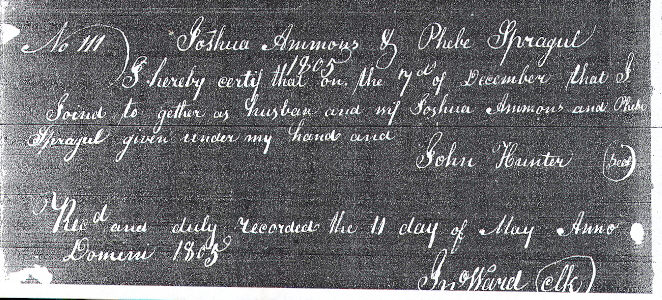 No 111. Joshua Ammons & Phebe Spragul
1805
I hereby certif that on the 7d of December that I
Joind to gether as husban and wif Joshua Ammons and Phebe
Spragul given under my hand and
John Hunter (Seal)
Recd and duly recorded the 11 day of May Anno
Domini 1805
Jno Ward clk